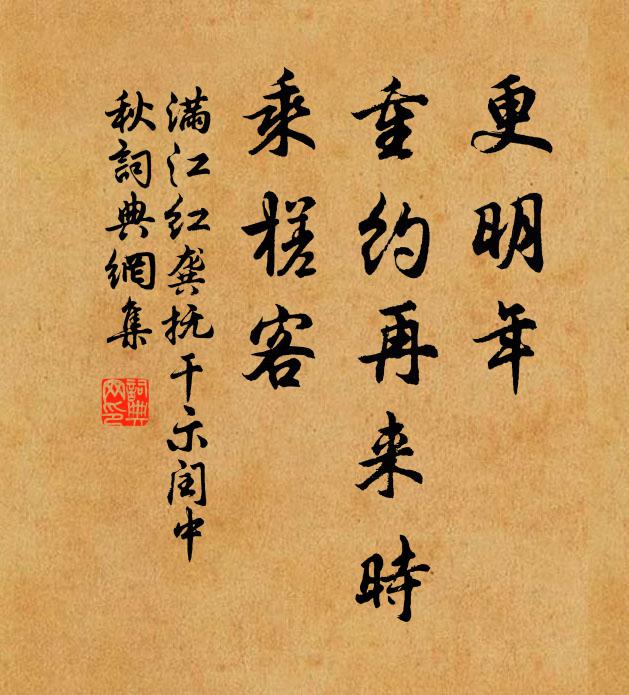 更明年
重约再来時
乘槎客
满江红龚抚干示闰中
秋詞典網集
詞典网印